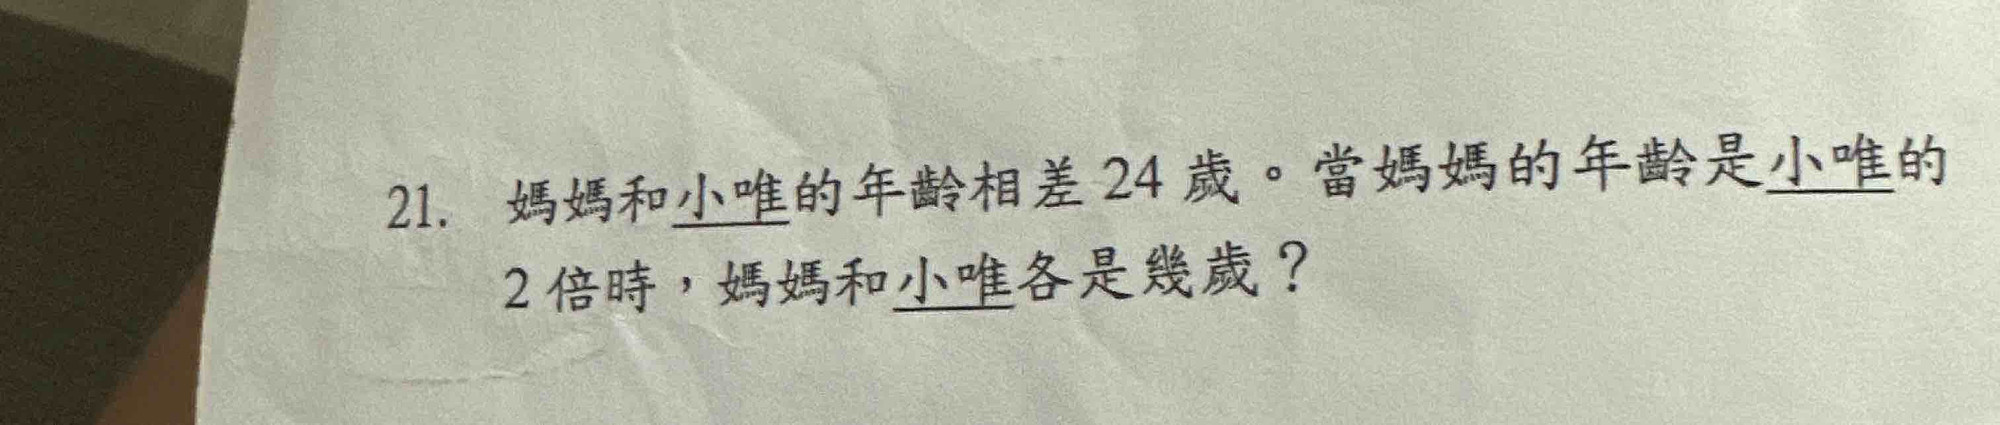 21. 媽媽和小唯的年齡相差 24 歲。當媽媽的年齡是小唯的
2 倍時，媽媽和小唯各是幾歲？